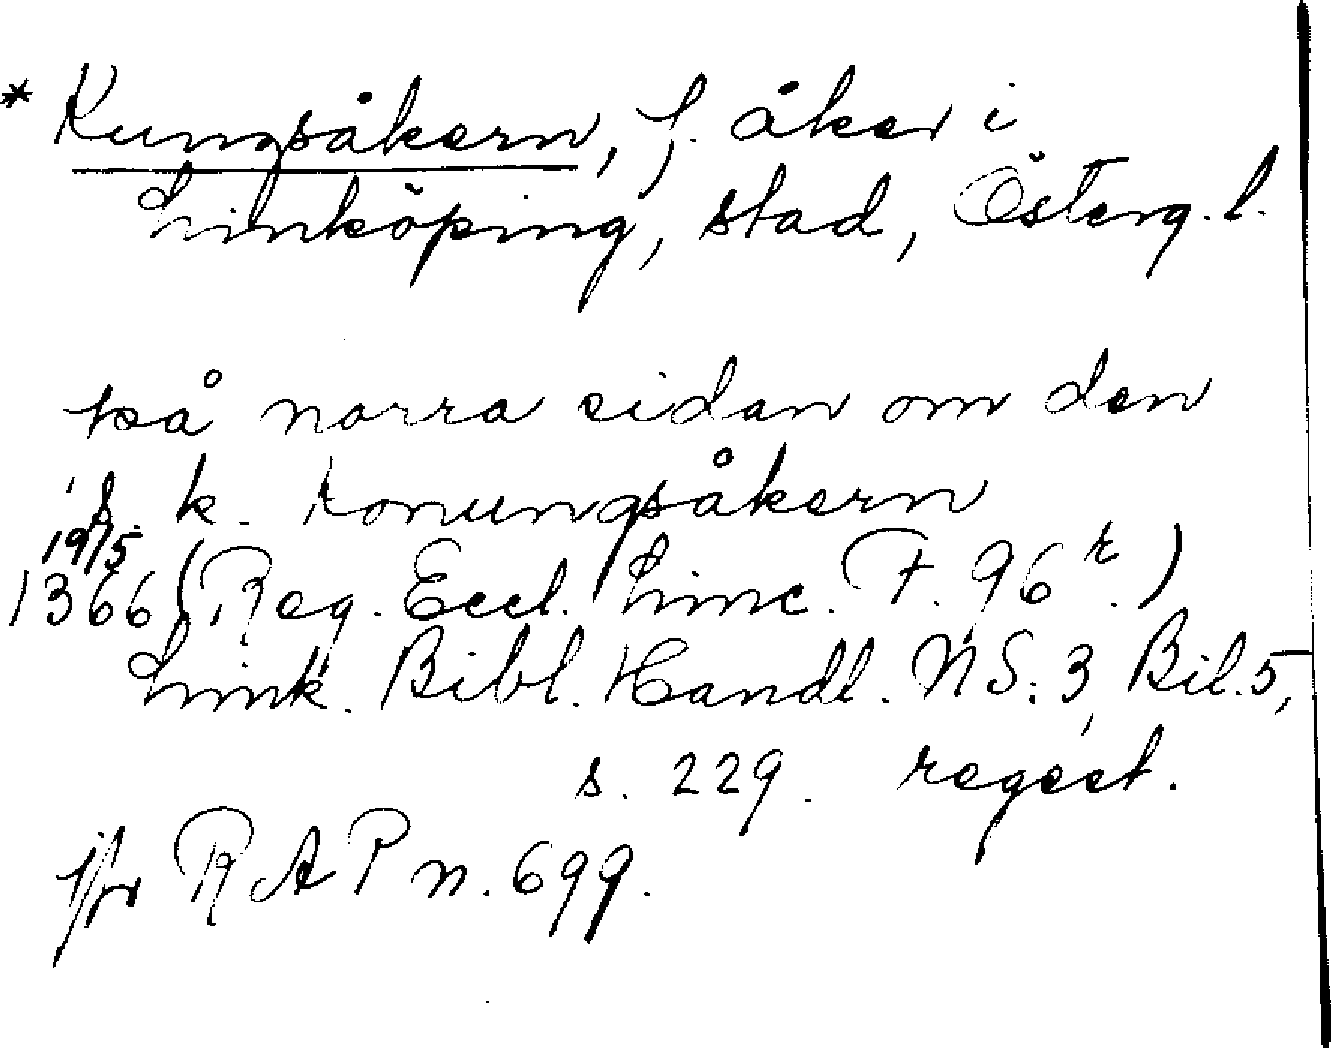 * Kungsåkern, f. åker i
Linköping, stad, Österg. l.
på norra sidan om den
s. k. konungsåkern
19/5
1366 (Reg. Eccl. Linc. F. 96 r.)
Link. Bibl. Handl. NS: 3, Bil. 5,
s. 229. regest.
jfr RAP n. 699.